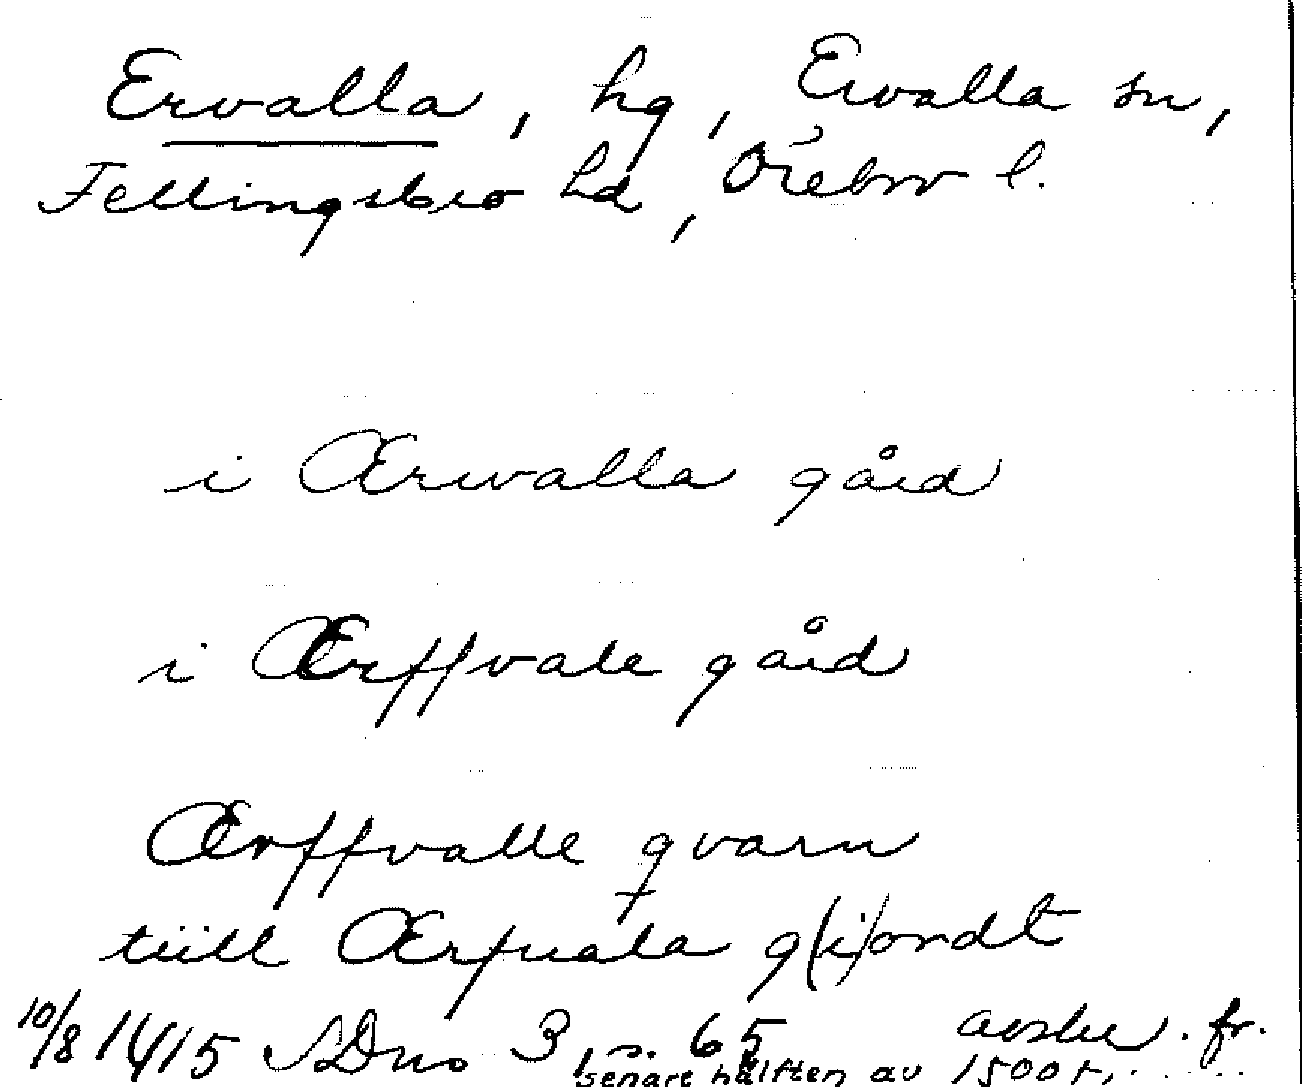 Ervalla, hg, Ervalla sn,
Fellingsbro hd, Örebro l.
i Ærwalla gård
i Ærffvale gård
Ærffvalle qvarn
tiill Ærfuala g(i)ordt
10/8 1415 SDns 3, s. 65 avskr. fr.
senare hälften av 1500 t.